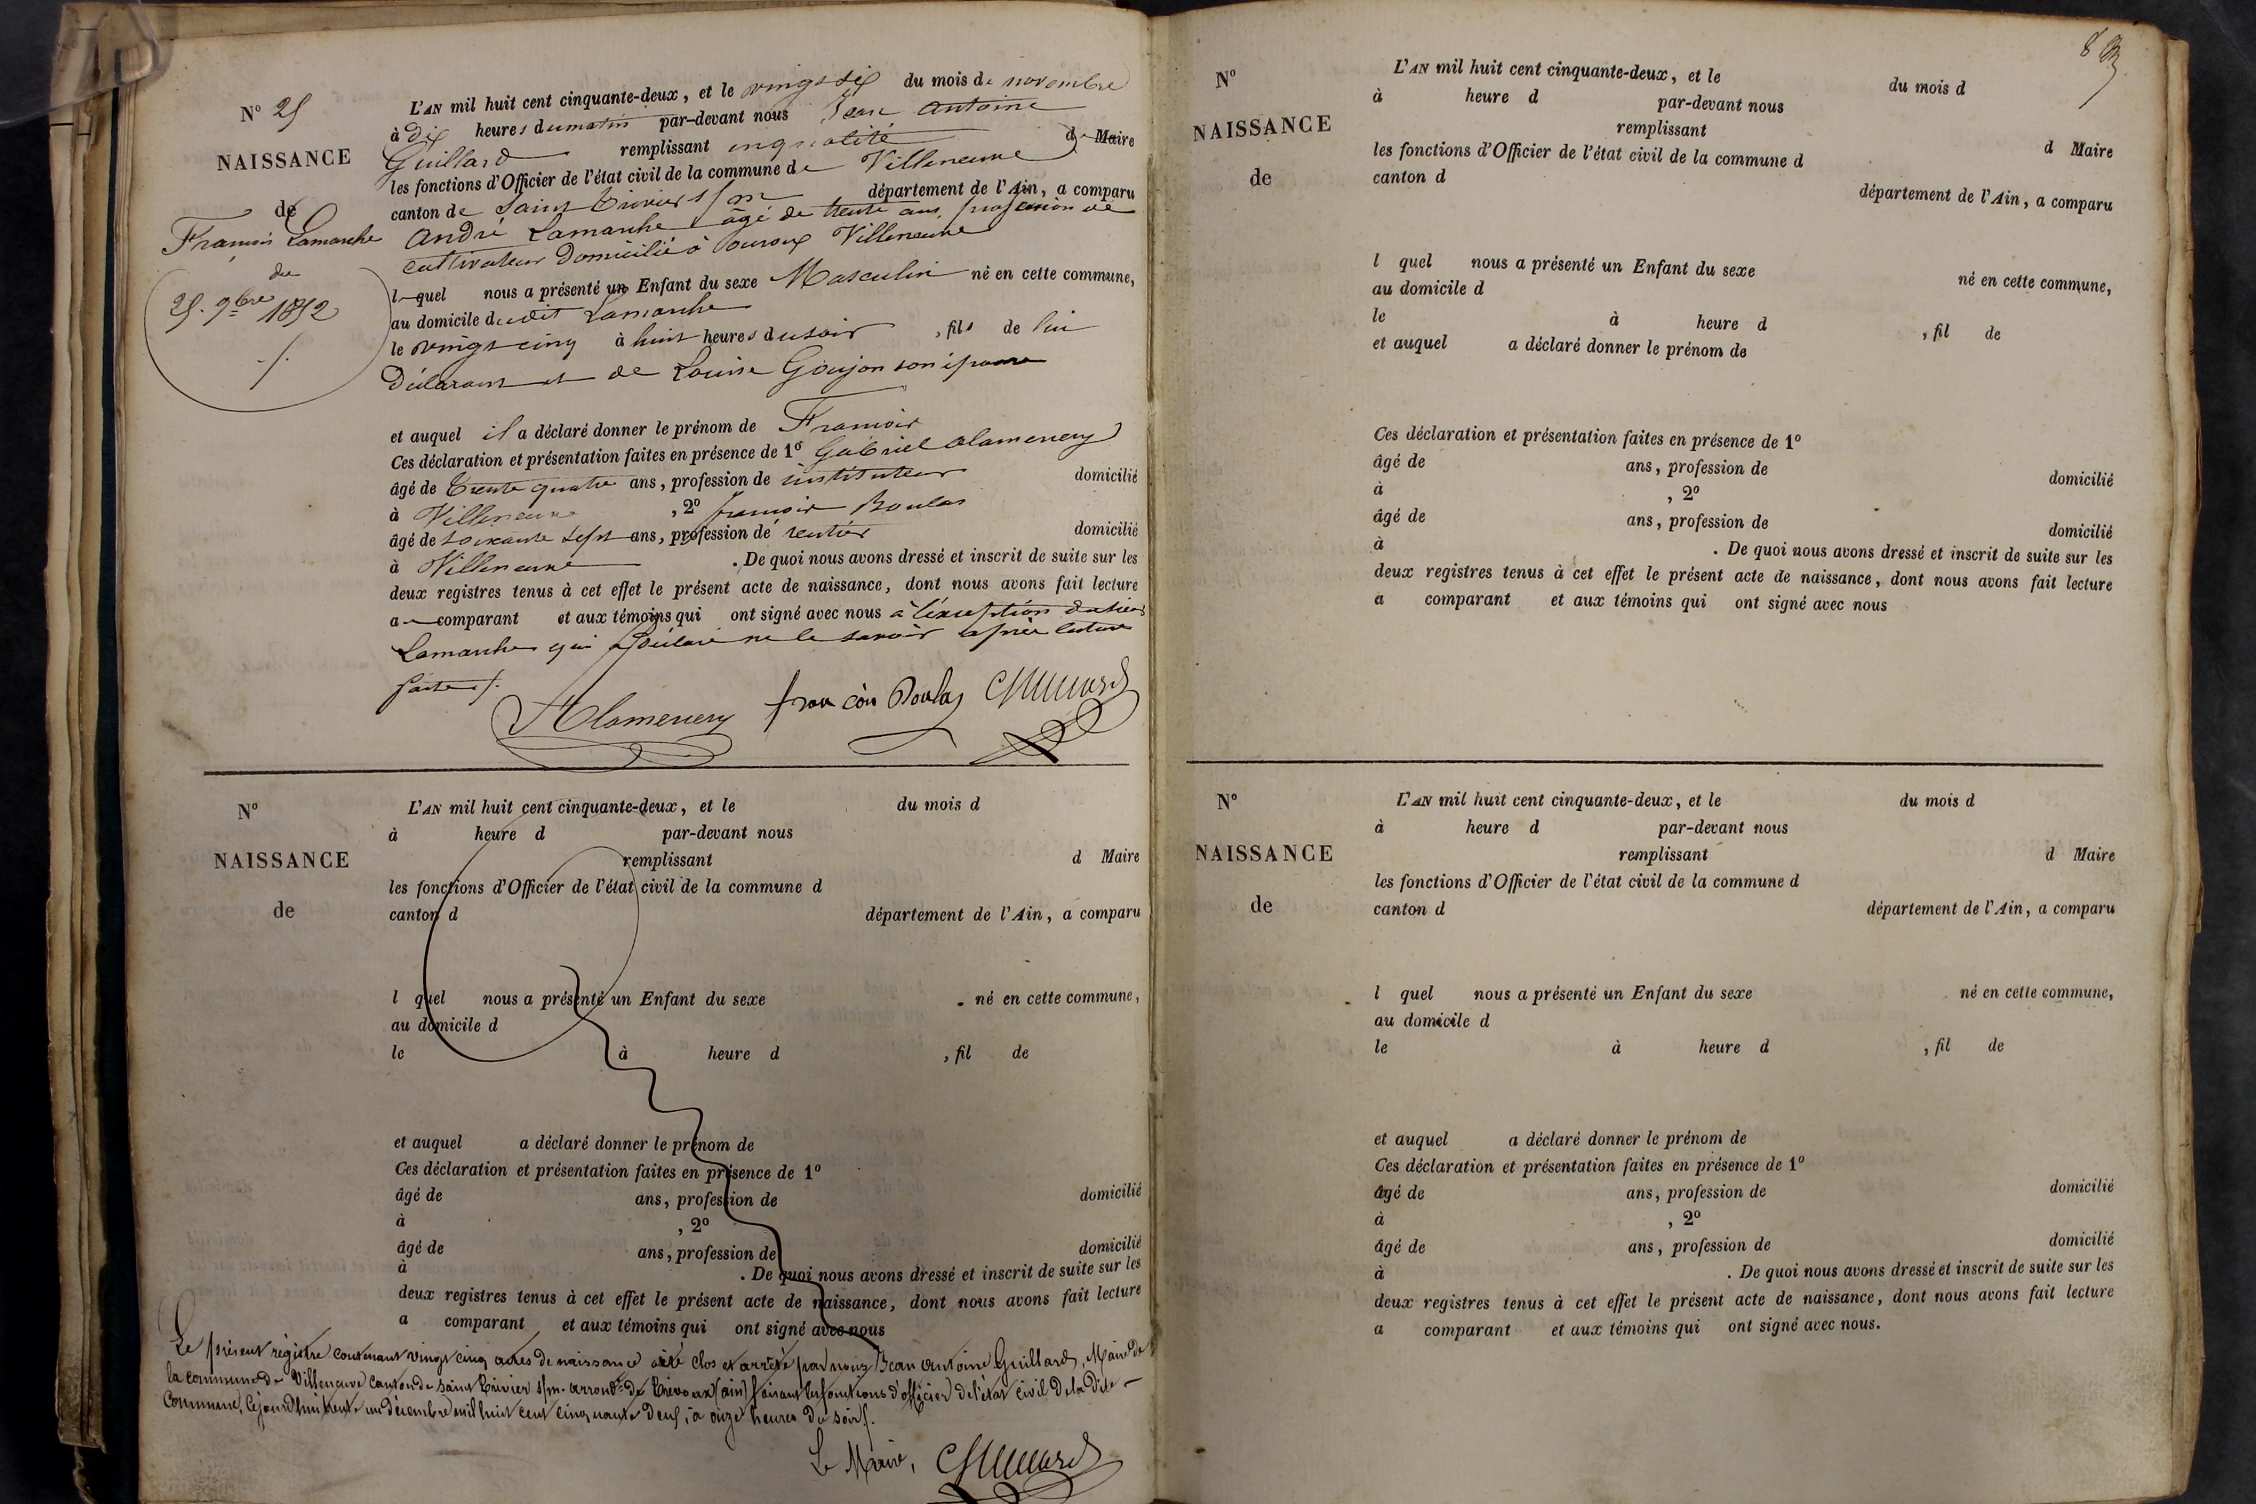 N° 25
NAISSANCE
de
François Lamarche
du
25. 9bre 1852
L'AN mil huit cent cinquante-deux, et le vingt six du mois de novembre
à dix heures du matin par-devant nous Jean Antoine
Guillard remplissant en qualité de Maire
les fonctions d'Officier de l'état civil de la commune de Villeneuve
canton de Saint Trivier s/m département de l'Ain, a comparu
André Lamarche âgé de trente ans, profession de
cultivateur domicilié à ouroux Villeneuve
lequel nous a présenté un Enfant du sexe Masculin né en cette commune,
au domicile dudit Lamarche
le vingt cinq à huit heures du soir, fils de lui
Déclarant et de Louise Goujon son épouse
et auquel il a déclaré donner le prénom de François
Ces déclaration et présentation faites en présence de 1° Gabriel Alamercery
âgé de trente quatre ans, profession de instituteur domicilié
à Villeneuve, 2° françois Boulas
âgé de soixante sept ans, profession de rentier domicilié
à Villeneuve. De quoi nous avons dressé et inscrit de suite sur les
deux registres tenus à cet effet le présent acte de naissance, dont nous avons fait lecture
au comparant et aux témoins qui ont signé avec nous à l'exception
Lamarche qui a déclaré ne le savoir après lecture
faite ./.
françois Boulas Guillard
N°
NAISSANCE
de
L'AN mil huit cent cinquante-deux, et le du mois d
à heure d par-devant nous
remplissant d Maire
les fonctions d'Officier de l'état civil de la commune d
canton d département de l'Ain, a comparu
l quel nous a présenté un Enfant du sexe né en cette commune,
au domicile d
le à heure d , fil de
et auquel a déclaré donner le prénom de
Ces déclaration et présentation faites en présence de 1°
âgé de ans, profession de domicilié
à , 2°
âgé de ans, profession de domicilié
à . De quoi nous avons dressé et inscrit de suite sur les
deux registres tenus à cet effet le présent acte de naissance, dont nous avons fait lecture
a comparant et aux témoins qui ont signé avec nous
Le présent régistre contenant vingt cinq actes de naissance a été clos et arrêté par nous Jean Antoine Guillard, Maire de
la commune de Villeneuve canton de saint Trivier s/m. arrondt. de Trévoux (ain) faisant les fonctions d'officier de l'état civil de la dite
Commune, Cejourd'hui trente un décembre mil huit cent cinquante deux, à onze heures du soir ./.
Le Maire, Guillard
8
N°
NAISSANCE
de
L'AN mil huit cent cinquante-deux, et le du mois d
à heure d par-devant nous
remplissant d Maire
les fonctions d'Officier de l'état civil de la commune d
canton d département de l'Ain, a comparu
l quel nous a présenté un Enfant du sexe né en cette commune,
au domicile d
le à heure d , fil de
et auquel a déclaré donner le prénom de
Ces déclaration et présentation faites en présence de 1°
âgé de ans, profession de domicilié
à , 2°
âgé de ans, profession de domicilié
à . De quoi nous avons dressé et inscrit de suite sur les
deux registres tenus à cet effet le présent acte de naissance, dont nous avons fait lecture
a comparant et aux témoins qui ont signé avec nous
N°
NAISSANCE
de
L'AN mil huit cent cinquante-deux, et le du mois d
à heure d par-devant nous
remplissant d Maire
les fonctions d'Officier de l'état civil de la commune d
canton d département de l'Ain, a comparu
l quel nous a présenté un Enfant du sexe né en cette commune,
au domicile d
le à heure d , fil de
et auquel a déclaré donner le prénom de
Ces déclaration et présentation faites en présence de 1°
âgé de ans, profession de domicilié
à , 2°
âgé de ans, profession de domicilié
à . De quoi nous avons dressé et inscrit de suite sur les
deux registres tenus à cet effet le présent acte de naissance, dont nous avons fait lecture
a comparant et aux témoins qui ont signé avec nous.